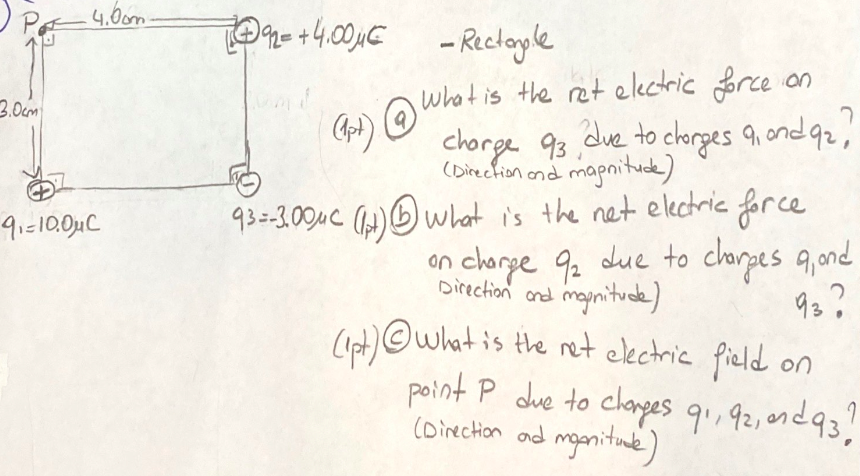 P 4.0cm
q2= +4.00μC
- Rectangle
3.0cm
+
+
-
q1=10.0μC
q3=-3.00μC
(1pt) a What is the net electric force on
charge q3 due to charges q1 and q2?
(Direction and magnitude)
(1pt) b What is the net electric force
on charge q2 due to charges q1 and
q3?
Direction and magnitude)
(1pt) c What is the net electric field on
point P due to charges q1, q2, and q3?
(Direction and mganitude)